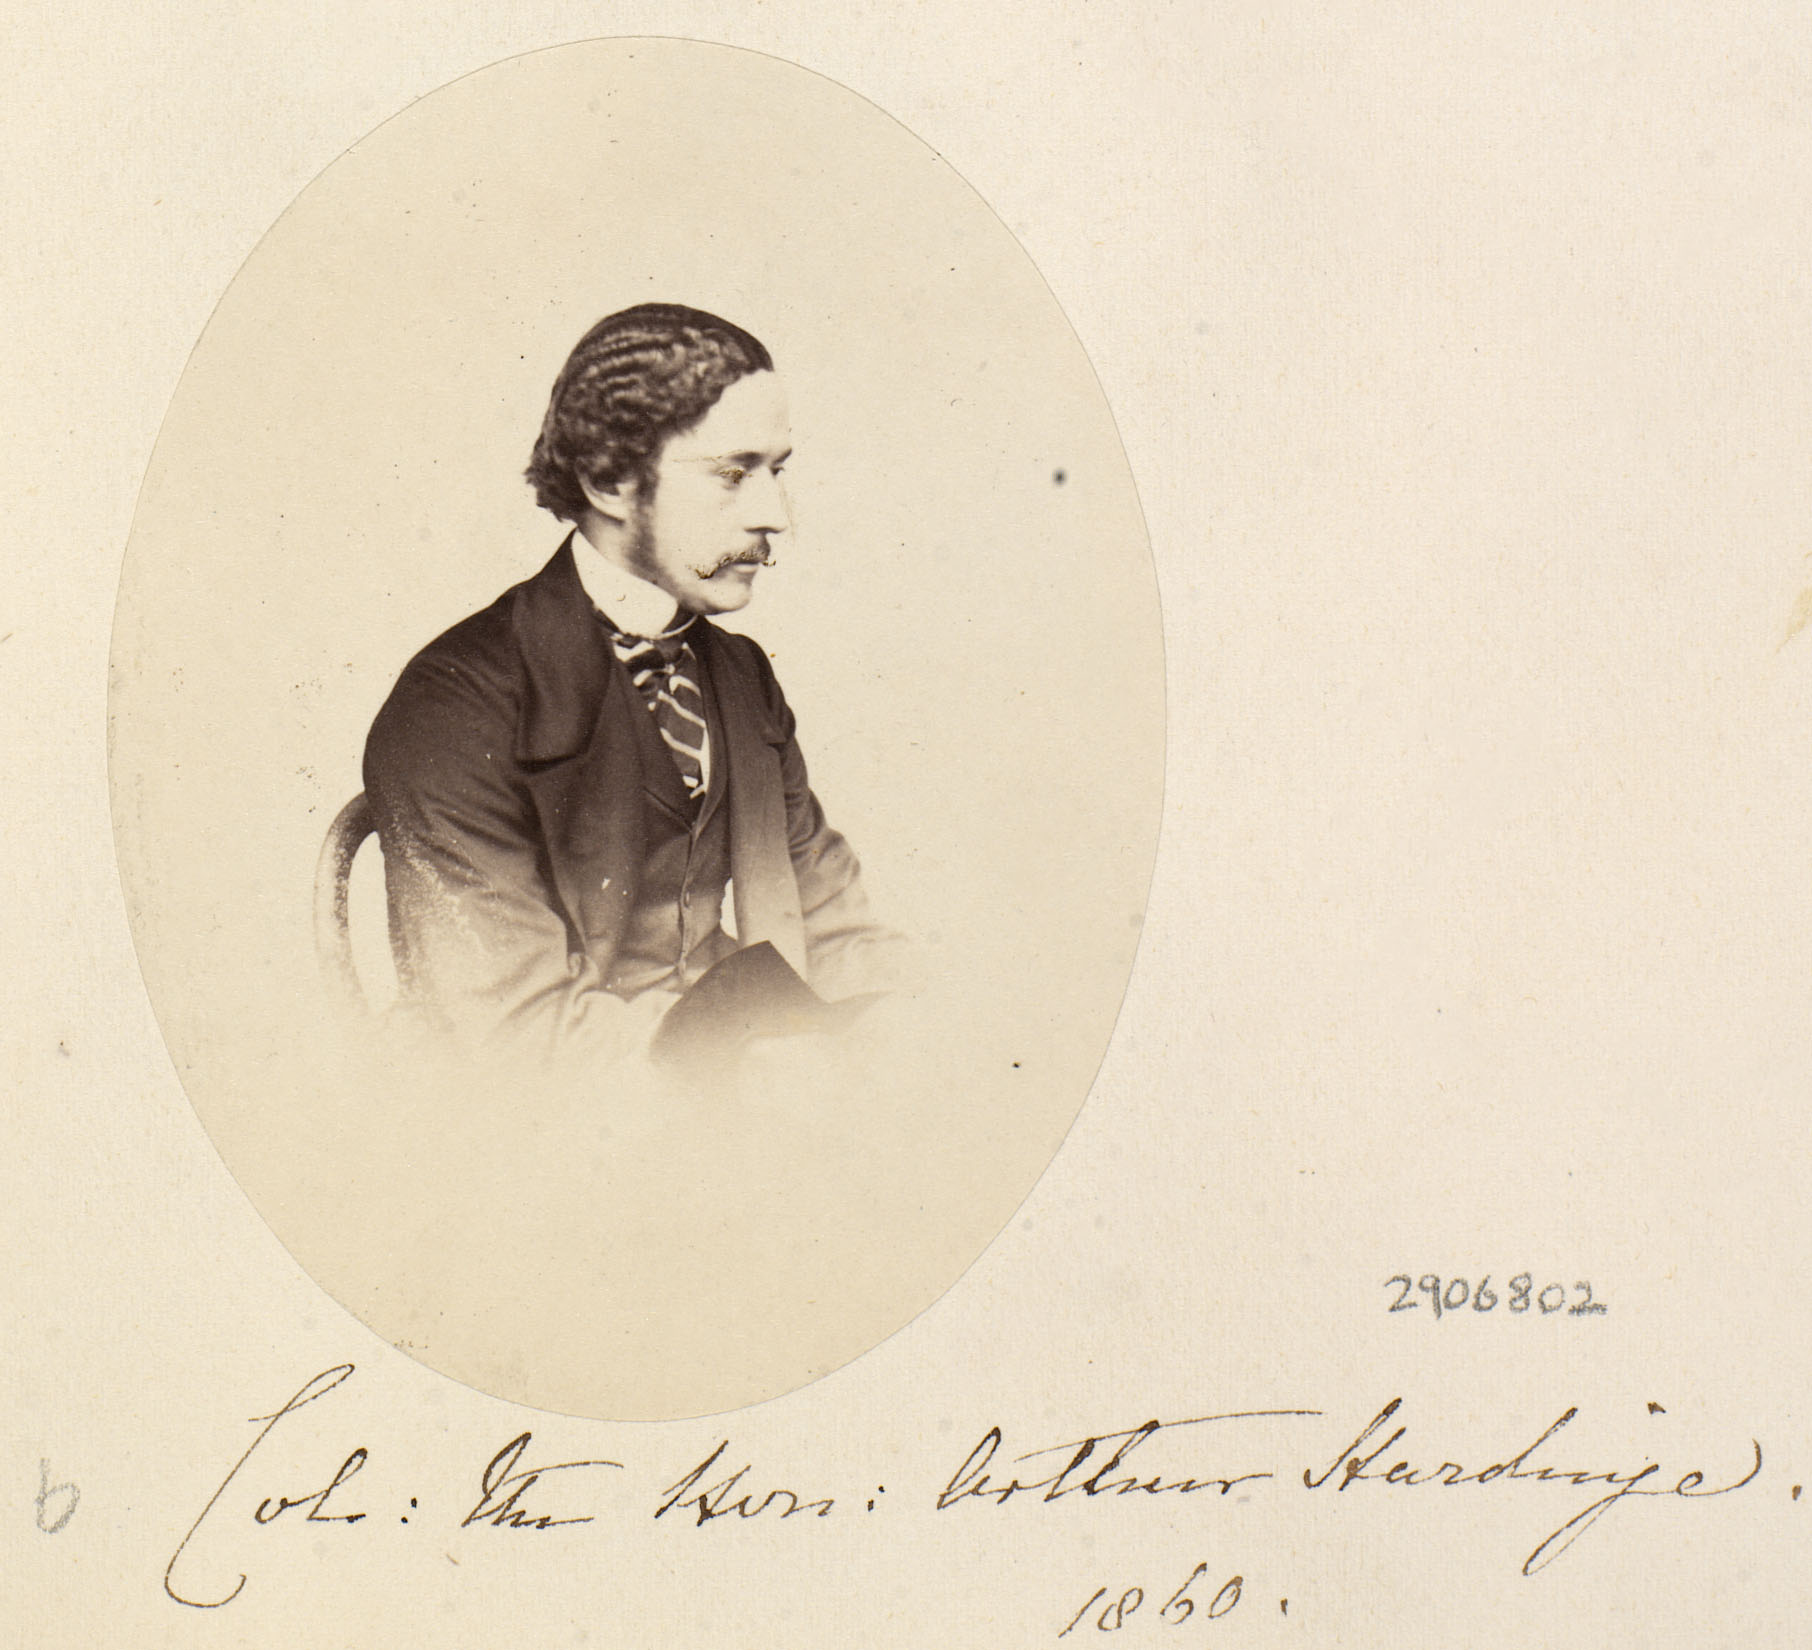 2906802
b Col: The Hon: Arthur Hardinge.
1860.